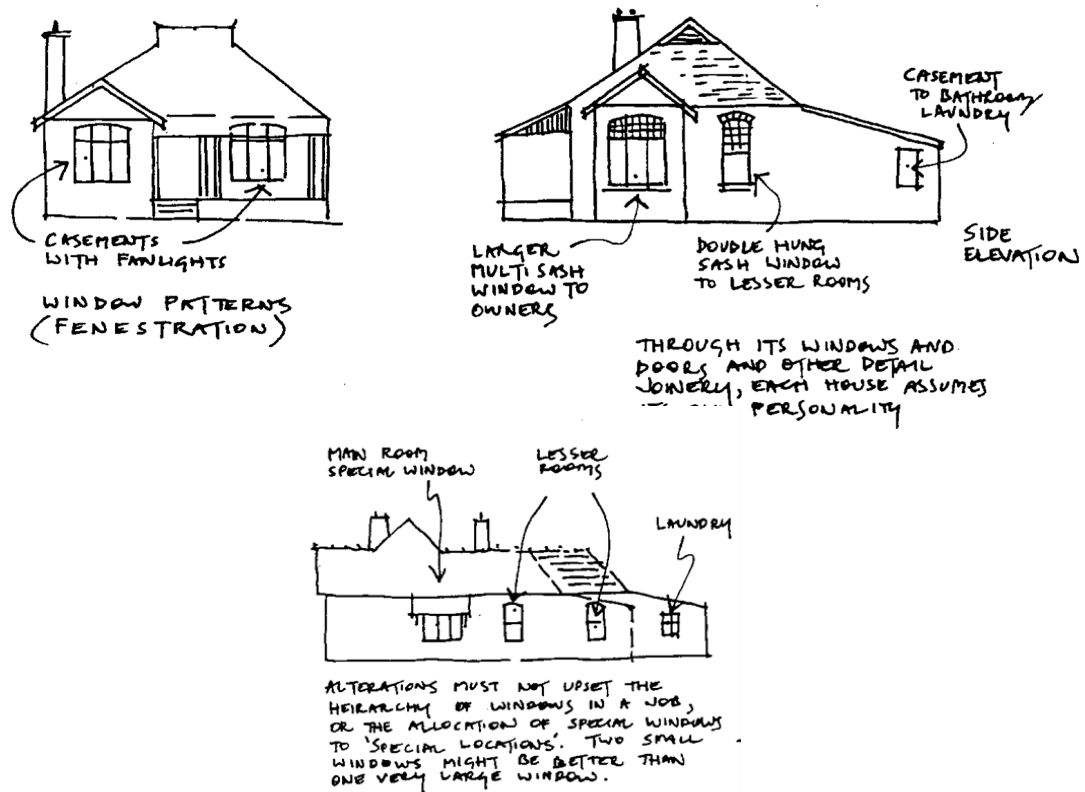 CASEMENTS
WITH FANLIGHTS
WINDOW PATTERNS
(FENESTRATION)
LARGER
MULTI SASH
WINDOW TO
OWNERS
DOUBLE HUNG
SASH WINDOW
TO LESSER ROOMS
CASEMENT
TO BATHROOM/
LAUNDRY
SIDE
ELEVATION
THROUGH ITS WINDOWS AND
DOORS AND OTHER DETAIL
JOINERY, EACH HOUSE ASSUMES
PERSONALITY
MAIN ROOM
SPECIAL WINDOW
LESSER
ROOMS
LAUNDRY
ALTERATIONS MUST NOT UPSET THE
HEIRARCHY OF WINDOWS IN A JOB,
OR THE ALLOCATION OF SPECIAL WINDOWS
TO 'SPECIAL LOCATIONS'. TWO SMALL
WINDOWS MIGHT BE BETTER THAN
ONE VERY LARGE WINDOW.